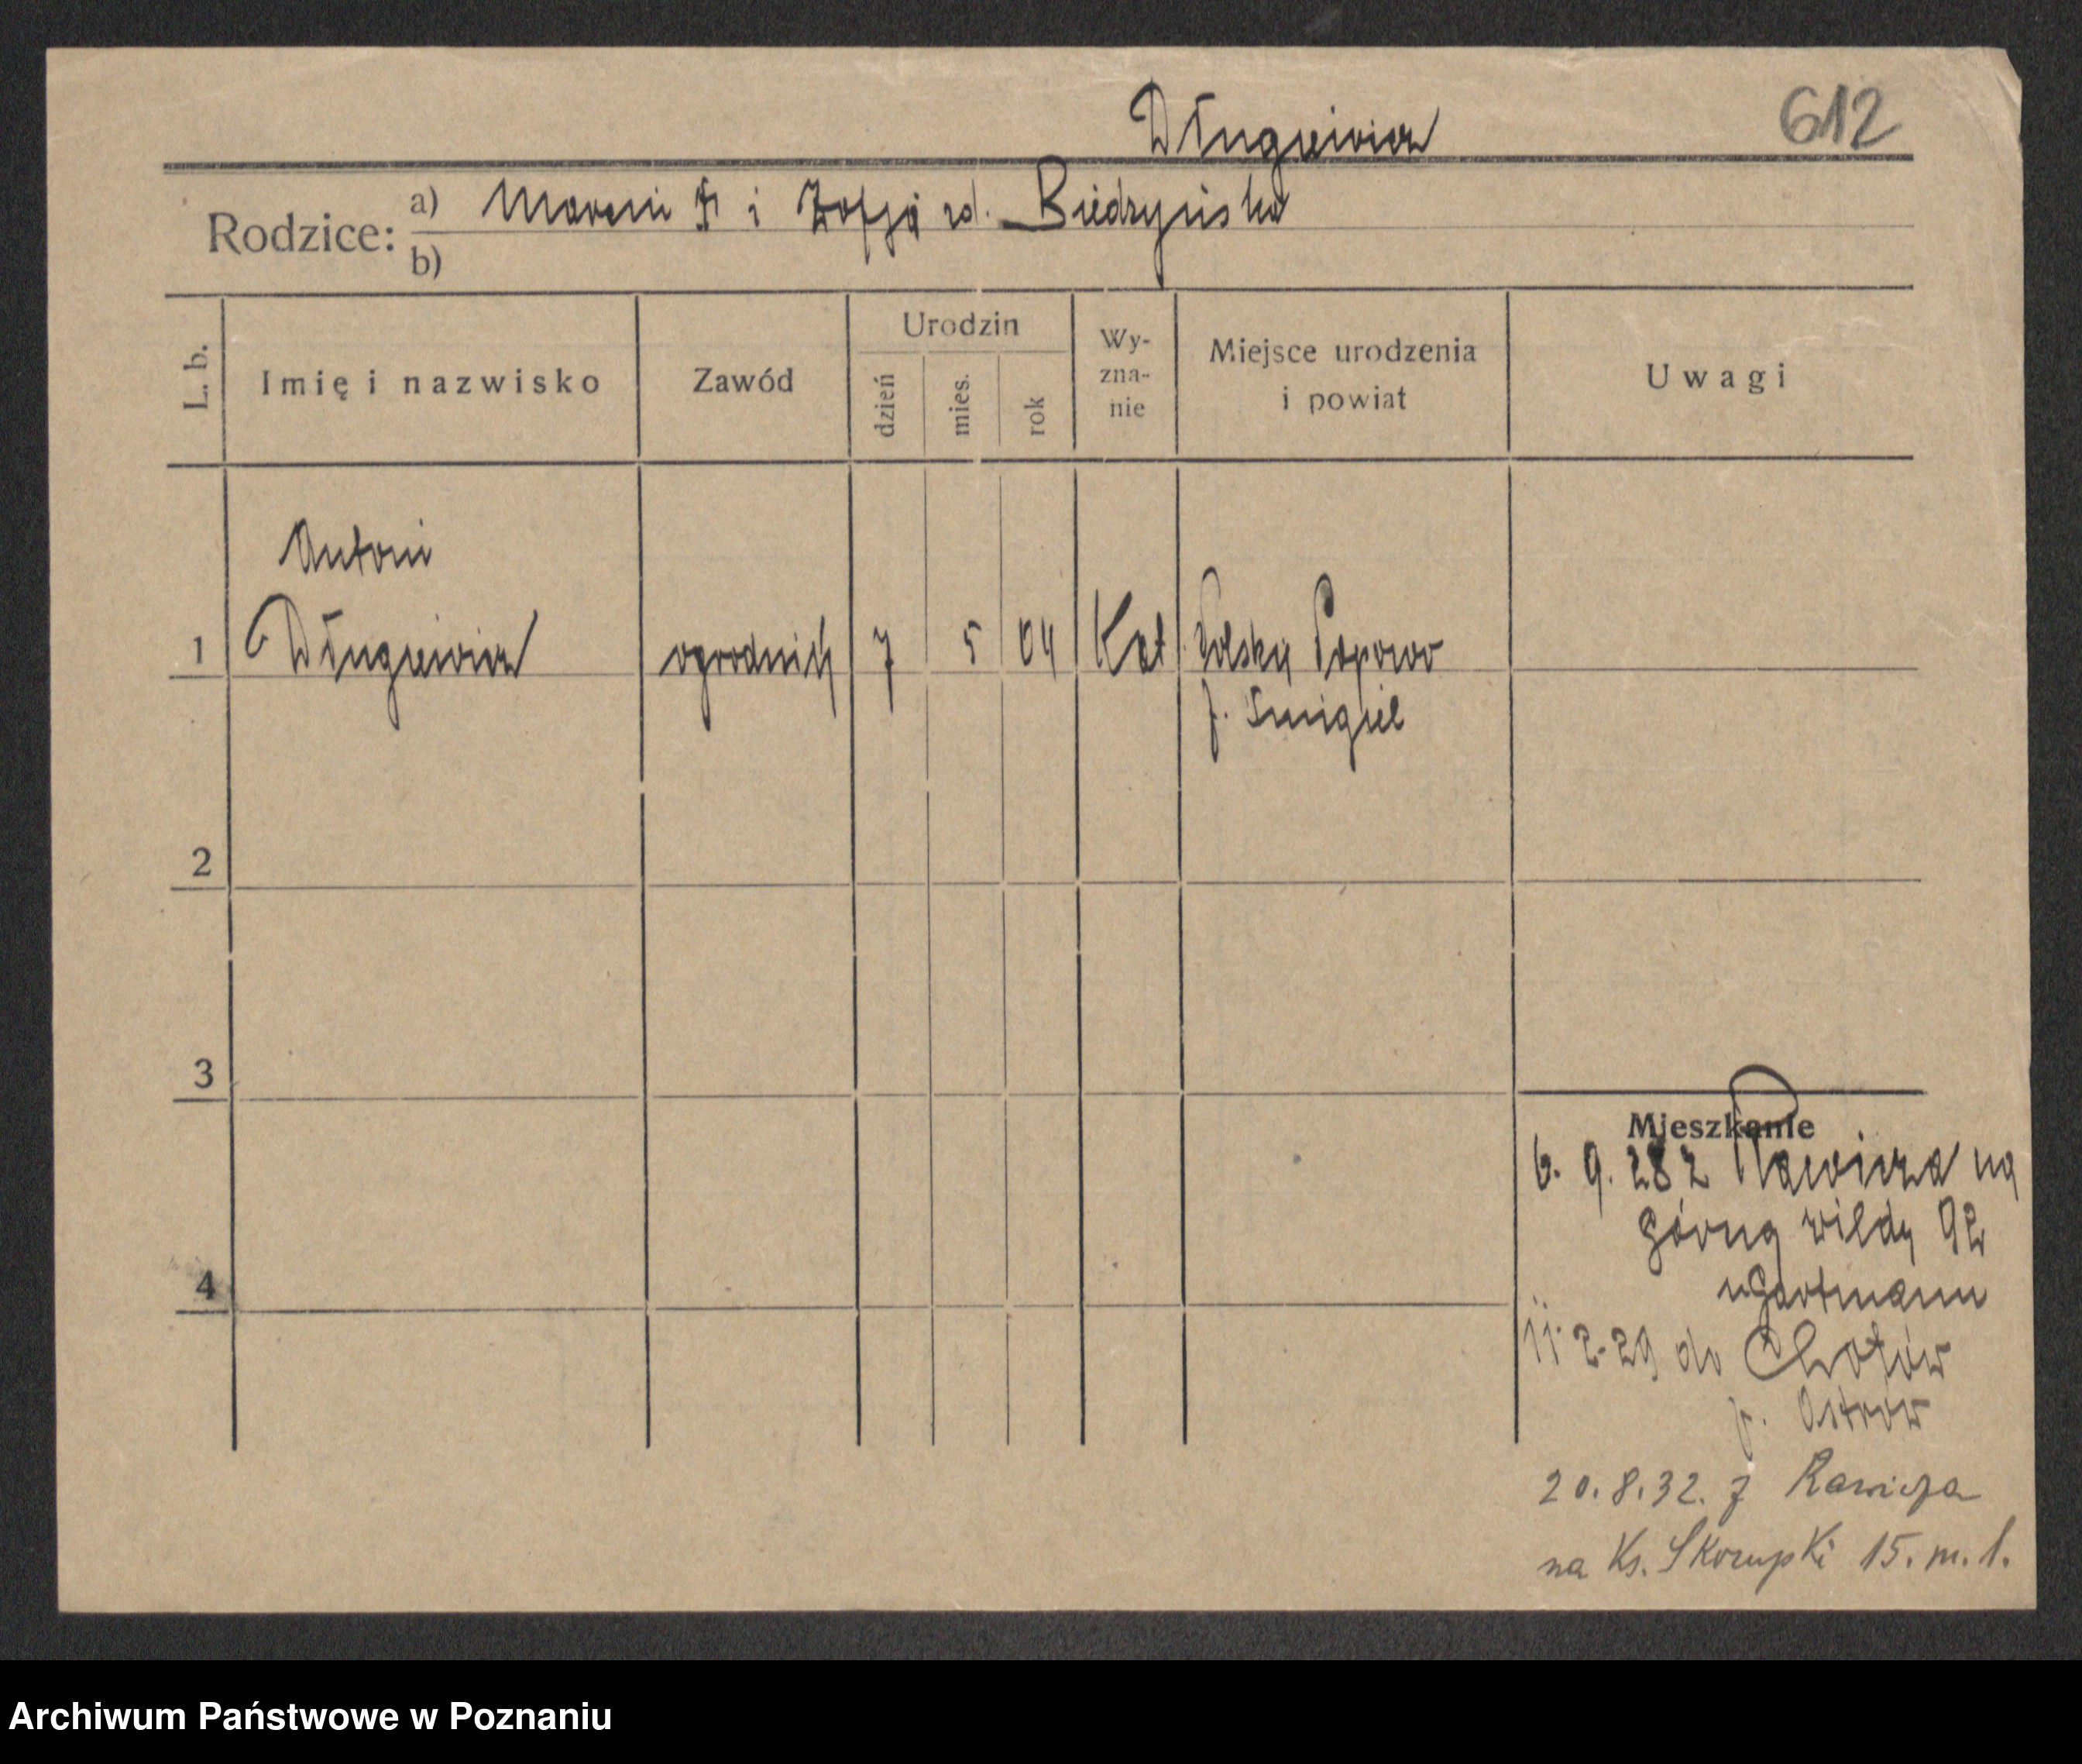 Długiewicz
612
Rodzice:
a) Marcin i Zofja rd. Biedrzyńska
b)
L. b.
Imię i nazwisko
Zawód
Urodzin
dzień
mies.
rok
Wy-
zna-
nie
Miejsce urodzenia
i powiat
Uwagi
Antoni
1 Długiewicz ogrodnik 7 5 04 Kat Polskie Popowo
p. Śmigiel
2
3
4
Mieszkanie
6. 9. 28 z Rawicza na
górną wildę 92
u Hartmann
11.2.29 do Chotów
p. Ostrów
20.8.32. z Rawicza
na Ks. Skorupki 15. m. 1.
Archiwum Państwowe w Poznaniu